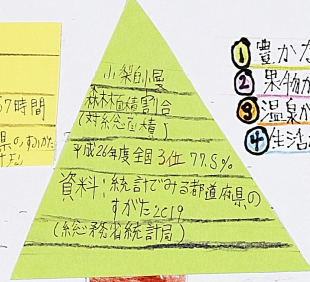 山梨県
森林面積割合
(対総面積)
平成26年度全国3位 77.8%
資料:統計でみる都道府県の
すがた2019
(総務省統計局)
7時間
県のすがた
1 豊かな
2 果物が
3 温泉が
4 生活